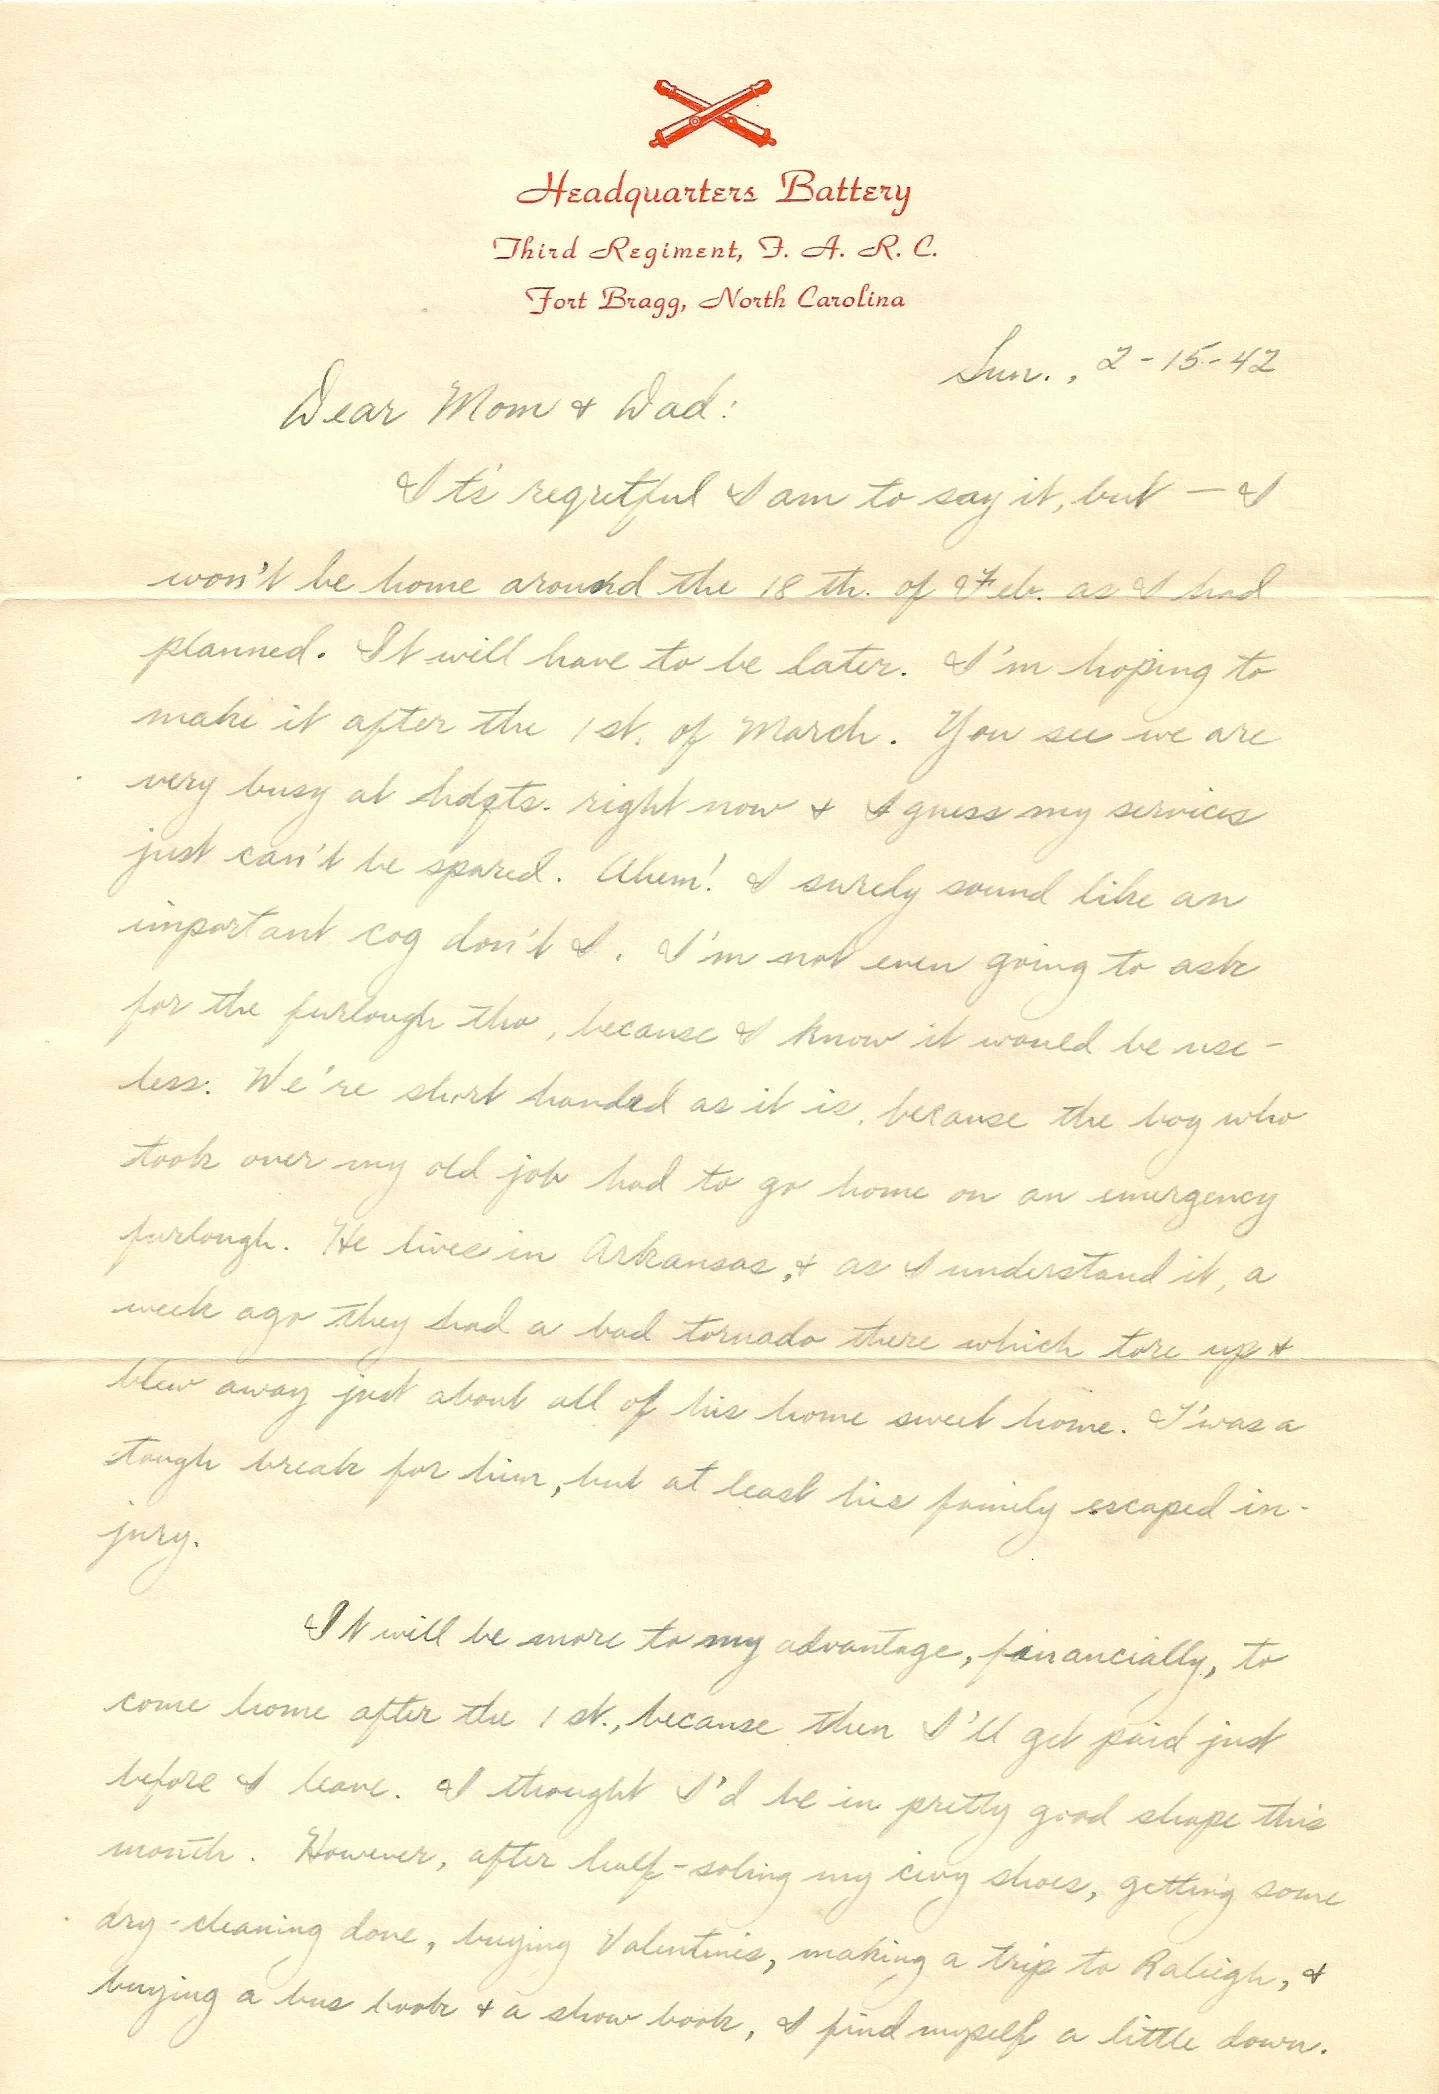 Headquarters Battery
Third Regiment, F. A. R. C.
Fort Bragg, North Carolina
Sun., 2-15-42
Dear Mom & Dad:
It's regretful I am to say it, but — I
won't be home around the 18 th. of Feb. as I had
planned. It will have to be later. I'm hoping to
make it after the 1st. of March. You see we are
very busy at hdqts. right now & I guess my services
just can't be spared. Ahem! I surely sound like an
important cog don't I. I'm not even going to ask
for the furlough tho, because I know it would be use-
less. We're short handed as it is, because the boy who
took over my old job had to go home on an emergency
furlough. He lives in Arkansas, & as I understand it, a
week ago they had a bad tornado there which tore up &
blew away just about all of his home sweet home. T'was a
tough break for him, but at least his family escaped in-
jury.
It will be more to my advantage, financially, to
come home after the 1st., because then I'll get paid just
before I leave. I thought I'd be in pretty good shape this
month. However, after half-soling my civy shoes, getting some
dry-cleaning done, buying Valentines, making a trip to Raleigh, &
buying a bus book & a show book, I find myself a little down.